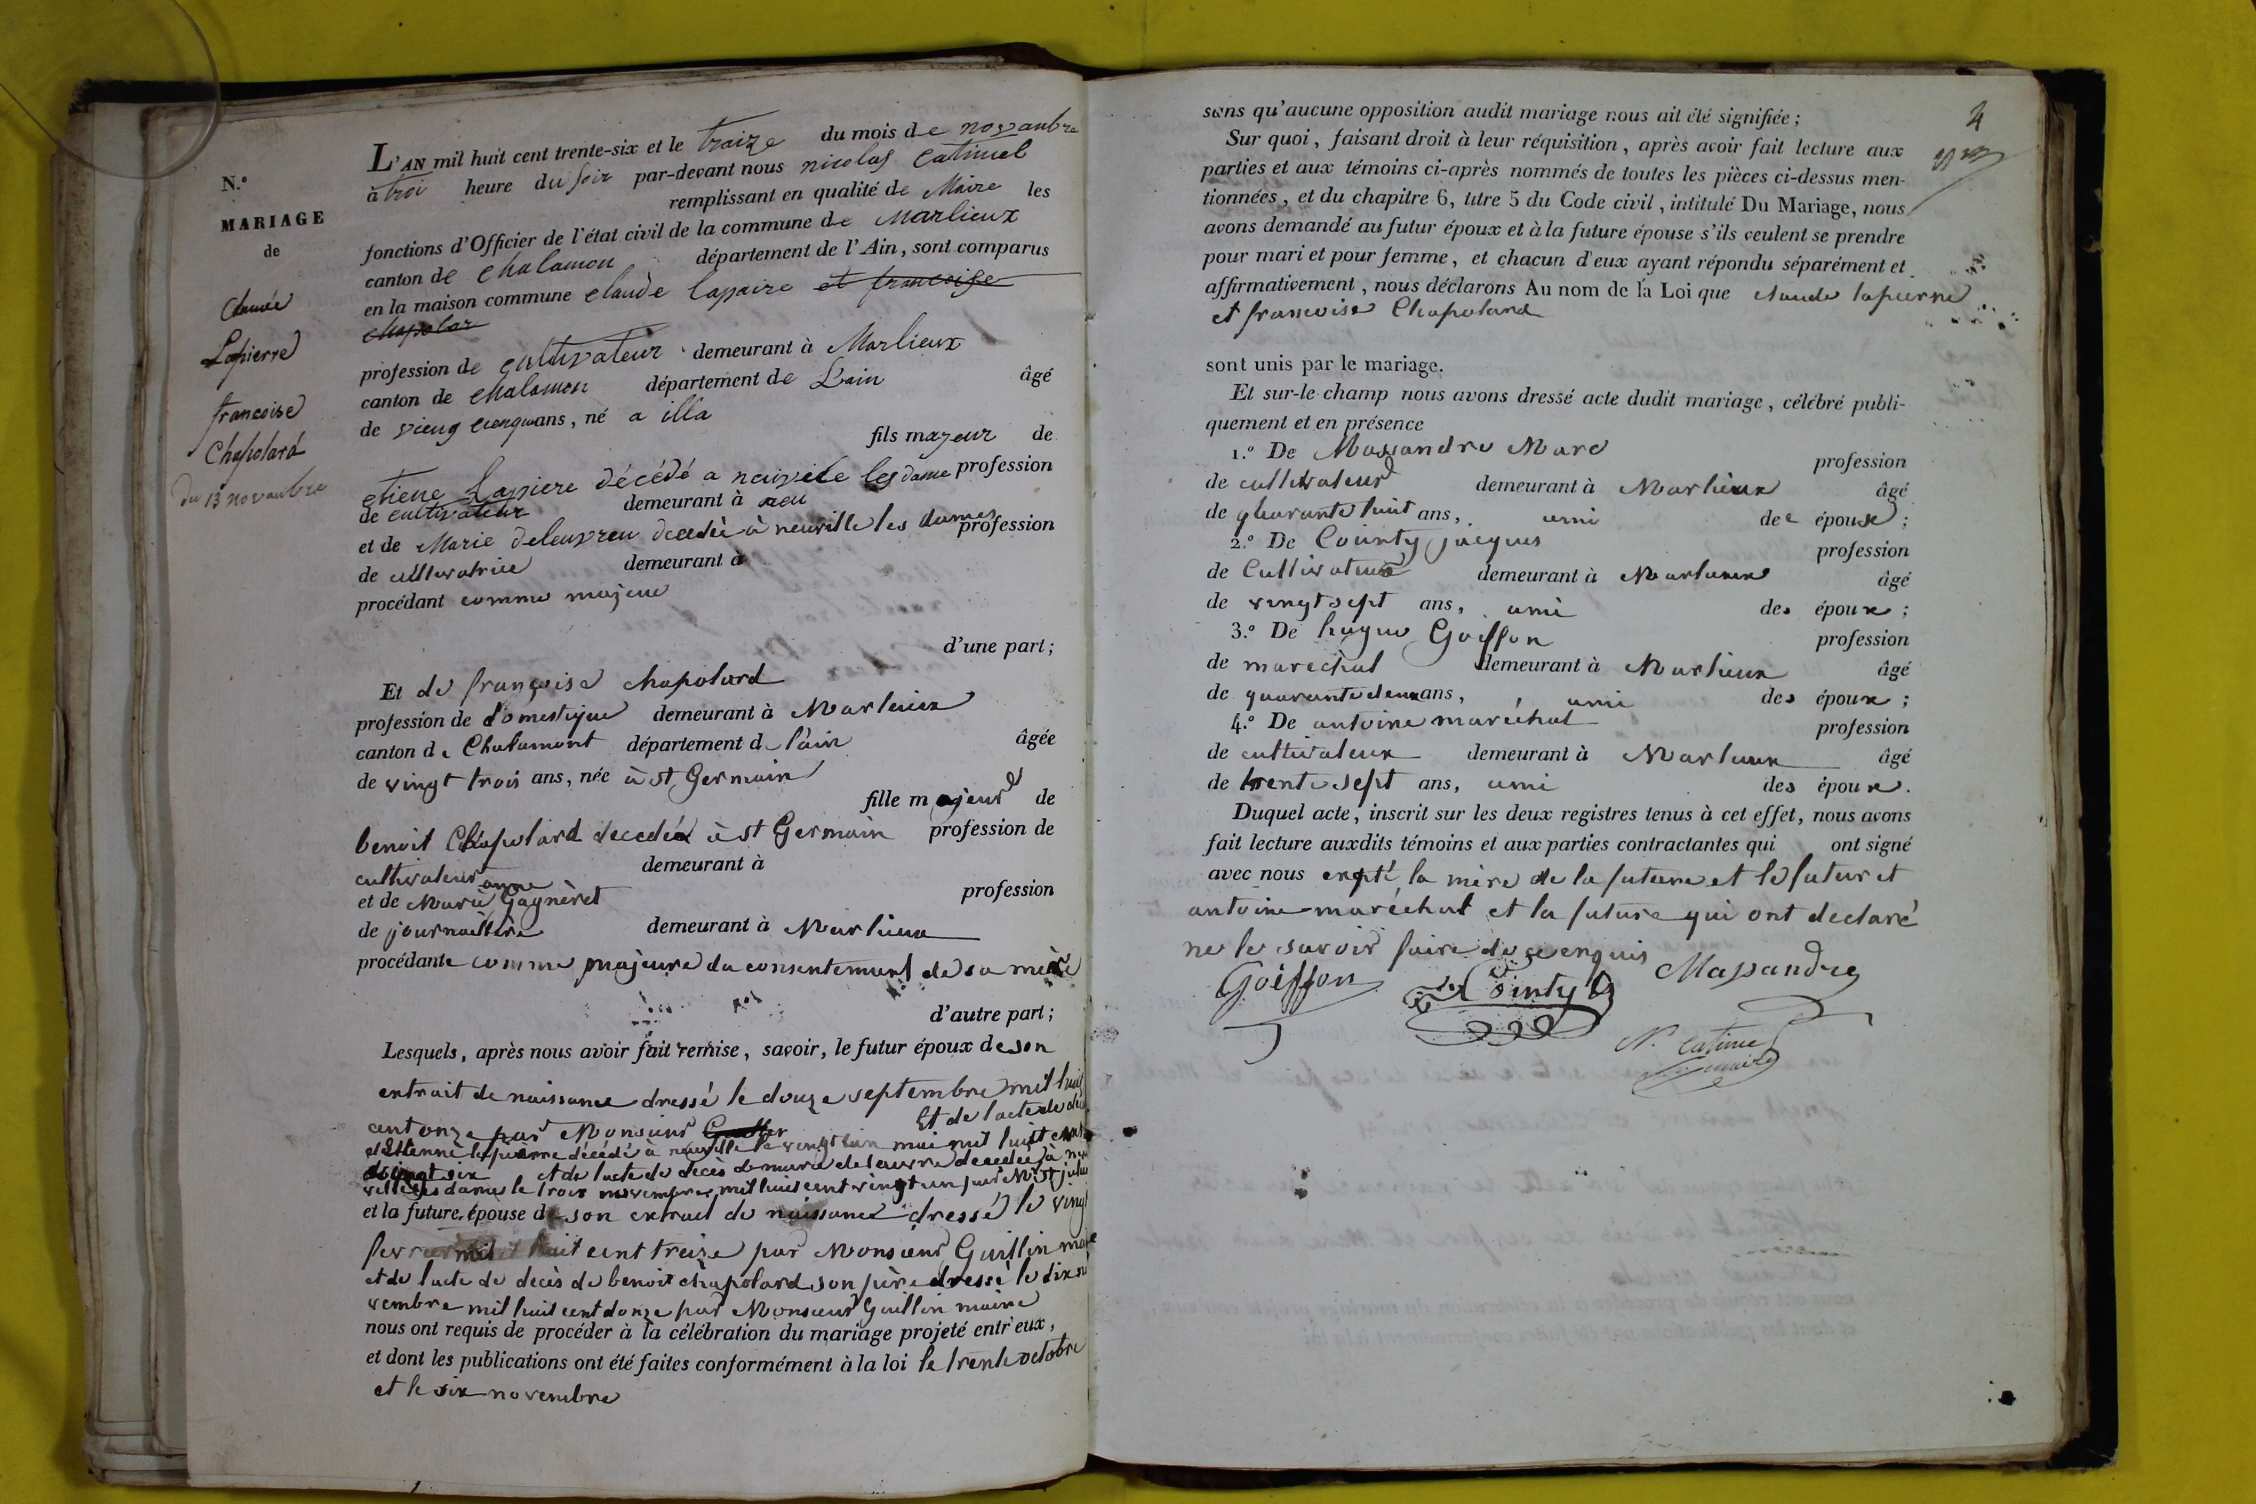 N.º
MARIAGE
de
Claude
Lapierre
françoise
Chapolard
du 13 novanbre
L'AN mil huit cent trente-six et le traize du mois de novanbre
à troi heure du soir par-devant nous nicolas Catimel
remplissant en qualité de Maire les
fonctions d'Officier de l'état civil de la commune de Marlieux
canton de Chalamon département de l'Ain, sont comparus
en la maison commune claude lapaire et francoise
chapolar
profession de cultivateur demeurant à Marlieux
canton de chalamon département de Lain âgé
de vieng ans, né a illa
fils mageur de
etiene Lapiere décédé a neuvile les dame profession
de cultivateur demeurant à
et de Marie decedé à neuville les dames profession
de cultivatrice demeurant à
procédant comme majeur
d'une part;
Et de françoise chapolard
profession de domestique demeurant à Marlieux
canton de Chalamont département de l'ain âgée
de vingt trois ans, née à st Germain
fille majeure de
benoit Chapolard decedé à st Germain profession de
cultivateur demeurant à
et de Marie anne Gagnèret profession
de journalière demeurant à Marlieux
procédante comme majeure du consentement de sa mère
d'autre part;
Lesquels, après nous avoir fait remise, savoir, le futur époux de son
extrait de naissance dressé le douze septembre mil huit
cent onze par Monsieur Et de lacte de
d'Etienne lapierre décédé à neuville le vingt mai mil huit cent
vingt six et de lacte de decès de marie decedée à neu
ville les dames le trois novembre mil huit cent vingt un par
et la future épouse de son extrait de naissance dressé le vingt
fevrier mil huit cent treize par Monsieur Guillin maire
et de lacte de decès de benoit chapolard son père dressé le dix no
vembre mil huit cent donze par Monsieur Guillin maire
nous ont requis de procéder à la célébration du mariage projeté entr'eux,
et dont les publications ont été faites conformément à la loi le trente octobre
et le six novembre
4
sans qu'aucune opposition audit mariage nous ait été signifiée;
Sur quoi, faisant droit à leur réquisition, après avoir fait lecture aux
parties et aux témoins ci-après nommés de toutes les pièces ci-dessus men-
tionnées, et du chapitre 6, titre 5 du Code civil, intitulé Du Mariage, nous
avons demandé au futur époux et à la future épouse s'ils veulent se prendre
pour mari et pour femme, et chacun d'eux ayant répondu séparément et
affirmativement, nous déclarons Au nom de la Loi que claude lapierre
et françoise Chapolard
sont unis par le mariage.
Et sur-le champ nous avons dressé acte dudit mariage, célébré publi-
quement et en présence
1.º De Massandre Marc profession
de cultivateur demeurant à Marlieux âgé
de quarante huit ans, ami des époux;
2.º De Cointy jacques profession
de Cultivateur demeurant à Marlieux âgé
de vingt sept ans, ami des époux;
3.º De hugue Goiffon profession
de marechal demeurant à Marlieux âgé
de quarante deux ans, ami des époux;
4.º De antoine maréchal profession
de cultivateur demeurant à Marlieux âgé
de trente sept ans, ami des époux.
Duquel acte, inscrit sur les deux registres tenus à cet effet, nous avons
fait lecture auxdits témoins et aux parties contractantes qui ont signé
avec nous exepté la mère de la future et le futur et
antoine maréchal et la future qui ont declaré
ne le savoir faire de ce enquis
Goiffon Cointy Massandre
N. Catimel
maire